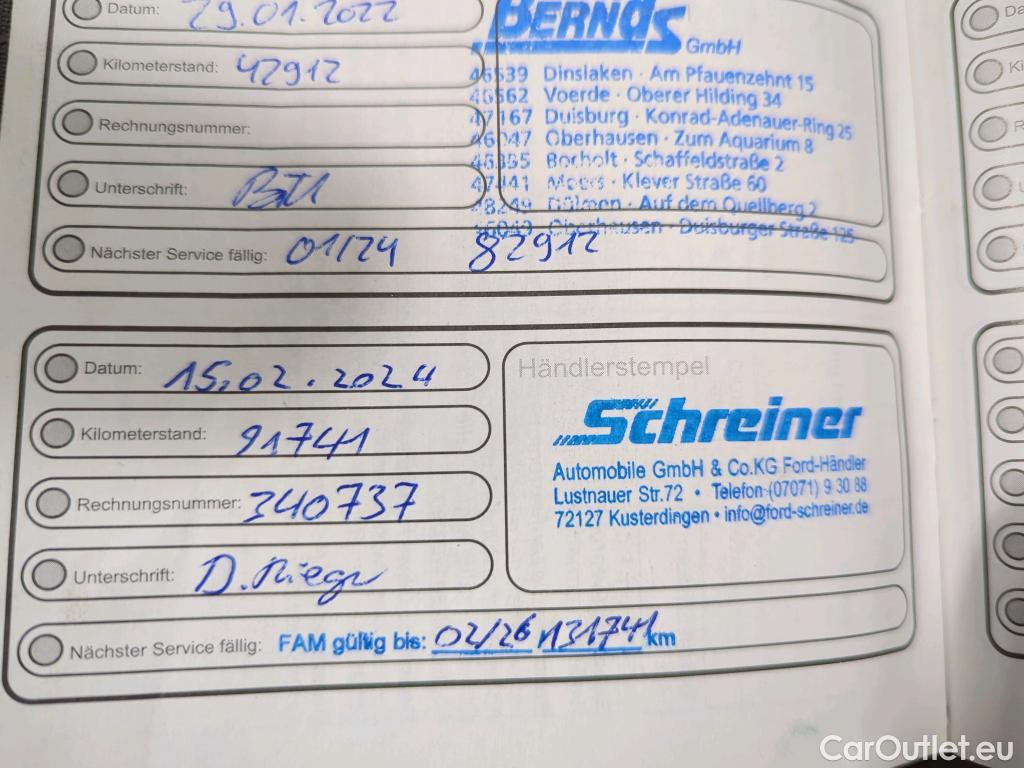 Datum: 29.01.2022
BERNDS
GmbH
Kilometerstand: 42912
46539 Dinslaken · Am Pfauenzehnt 15
46562 Voerde · Oberer Hilding 34
47167 Duisburg · Konrad-Adenauer-Ring 25
Rechnungsnummer:
46047 Oberhausen · Zum Aquarium 8
46395 Bocholt · Schaffeldstraße 2
47441 Moers · Klever Straße 60
Unterschrift:
48249 Dülmen · Auf dem Quellberg 2
46049 Oberhausen · Duisburger Straße 125
Nächster Service fällig: 01/24 82912
Datum: 15.02.2024
Händlerstempel
Kilometerstand: 91741
Schreiner
Automobile GmbH & Co.KG Ford-Händler
Rechnungsnummer: 340737
Lustnauer Str.72 • Telefon (07071) 9 30 88
72127 Kusterdingen • info@ford-schreiner.de
Unterschrift: D.
Nächster Service fällig: FAM gültig bis: 02/26 131741 km
CarOutlet.eu